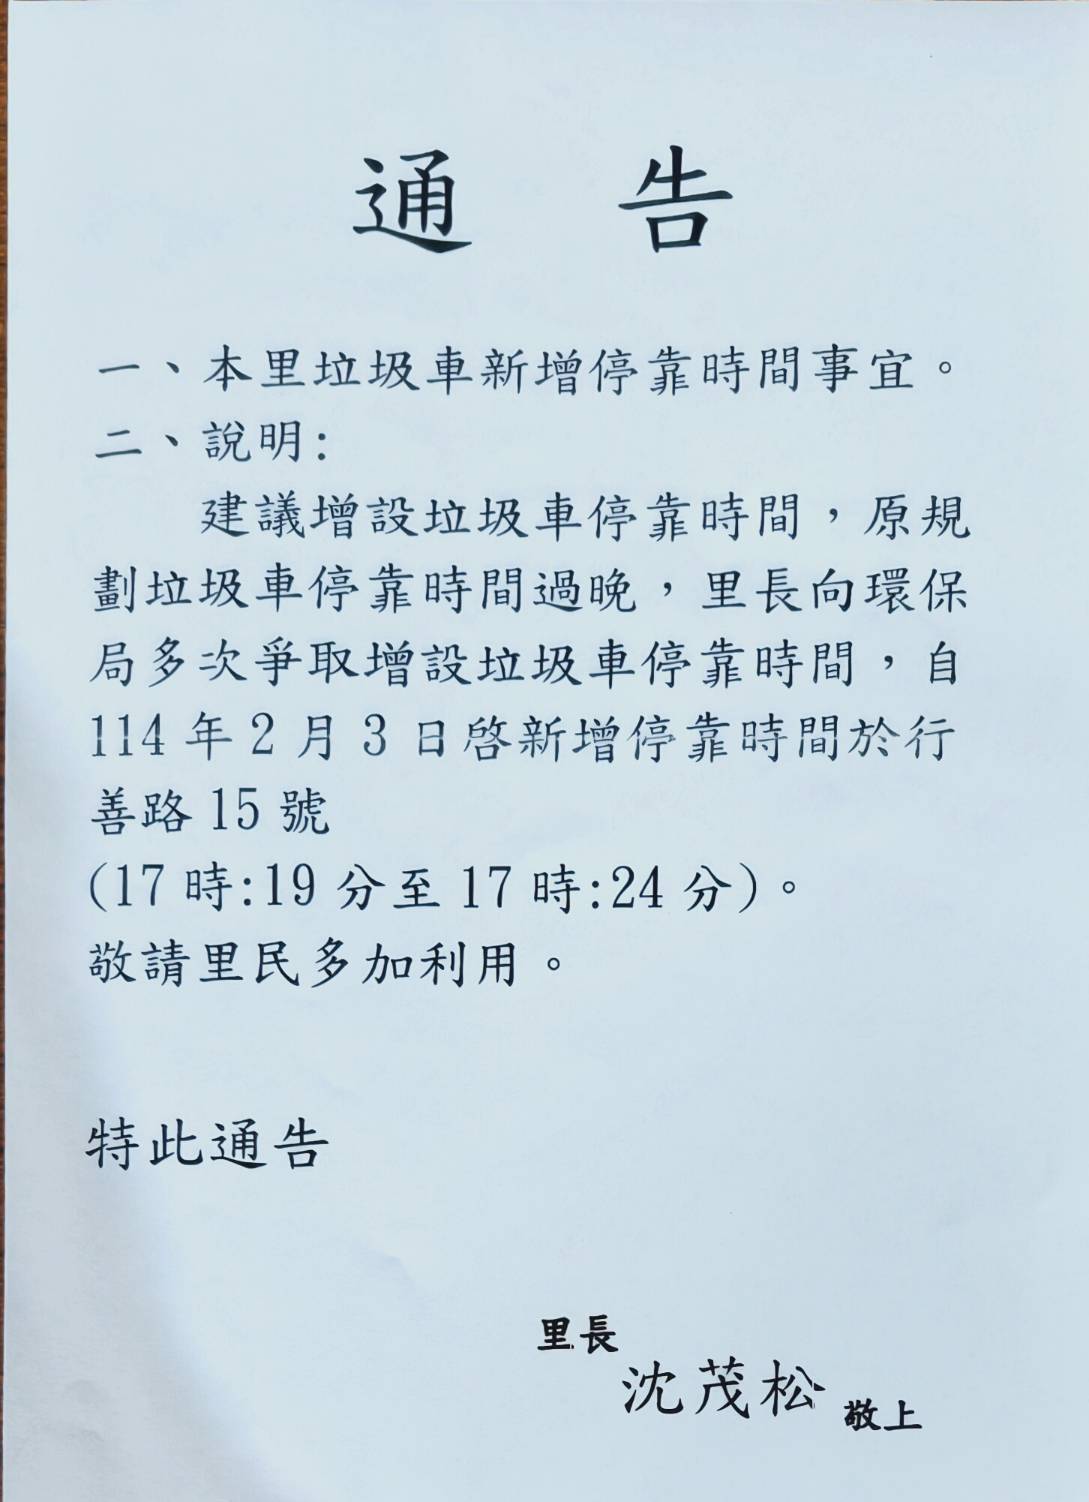 通 告
一、本里垃圾車新增停靠時間事宜。
二、說明:
建議增設垃圾車停靠時間，原規
劃垃圾車停靠時間過晚，里長向環保
局多次爭取增設垃圾車停靠時間，自
114 年 2 月 3 日啓新增停靠時間於行
善路 15 號
(17 時:19 分至 17 時:24 分)。
敬請里民多加利用。
特此通告
里長
沈茂松 敬上